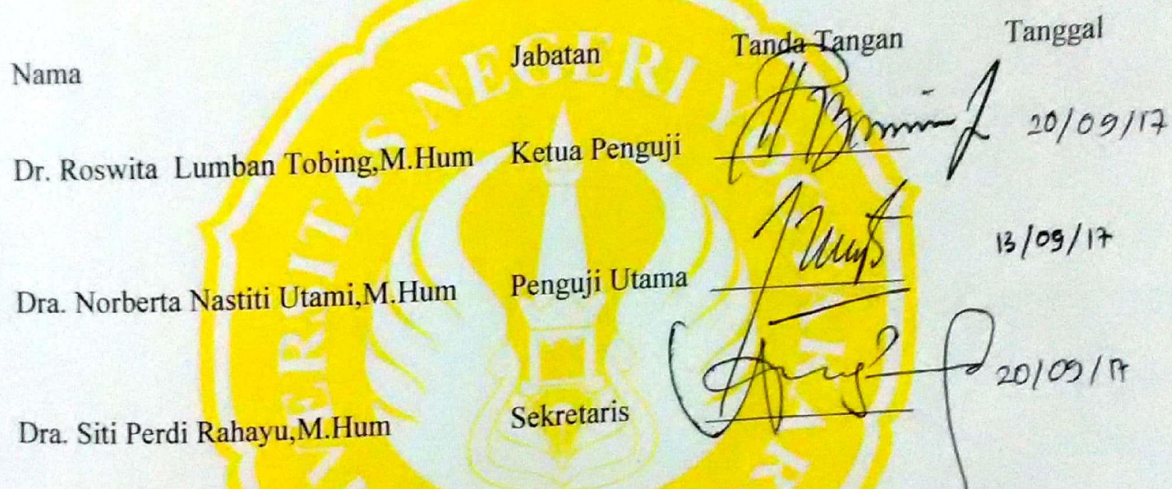 Nama Jabatan Tanda Tangan Tanggal
Dr. Roswita Lumban Tobing,M.Hum Ketua Penguji 20/09/17
Dra. Norberta Nastiti Utami,M.Hum Penguji Utama 13/09/17
Dra. Siti Perdi Rahayu,M.Hum Sekretaris 20/09/17